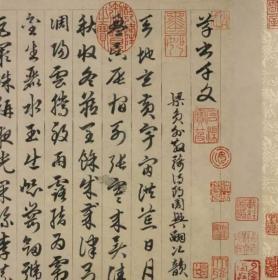 草書千文
梁員外散騎侍郎周興嗣次韻
天地玄黃宇宙洪荒日月
盈昃辰宿列張寒來暑往
秋收冬藏閏餘成歲律呂
調陽雲騰致雨露結為霜
金生麗水玉生崑岡劍號
巨闕珠稱夜光果珍李柰